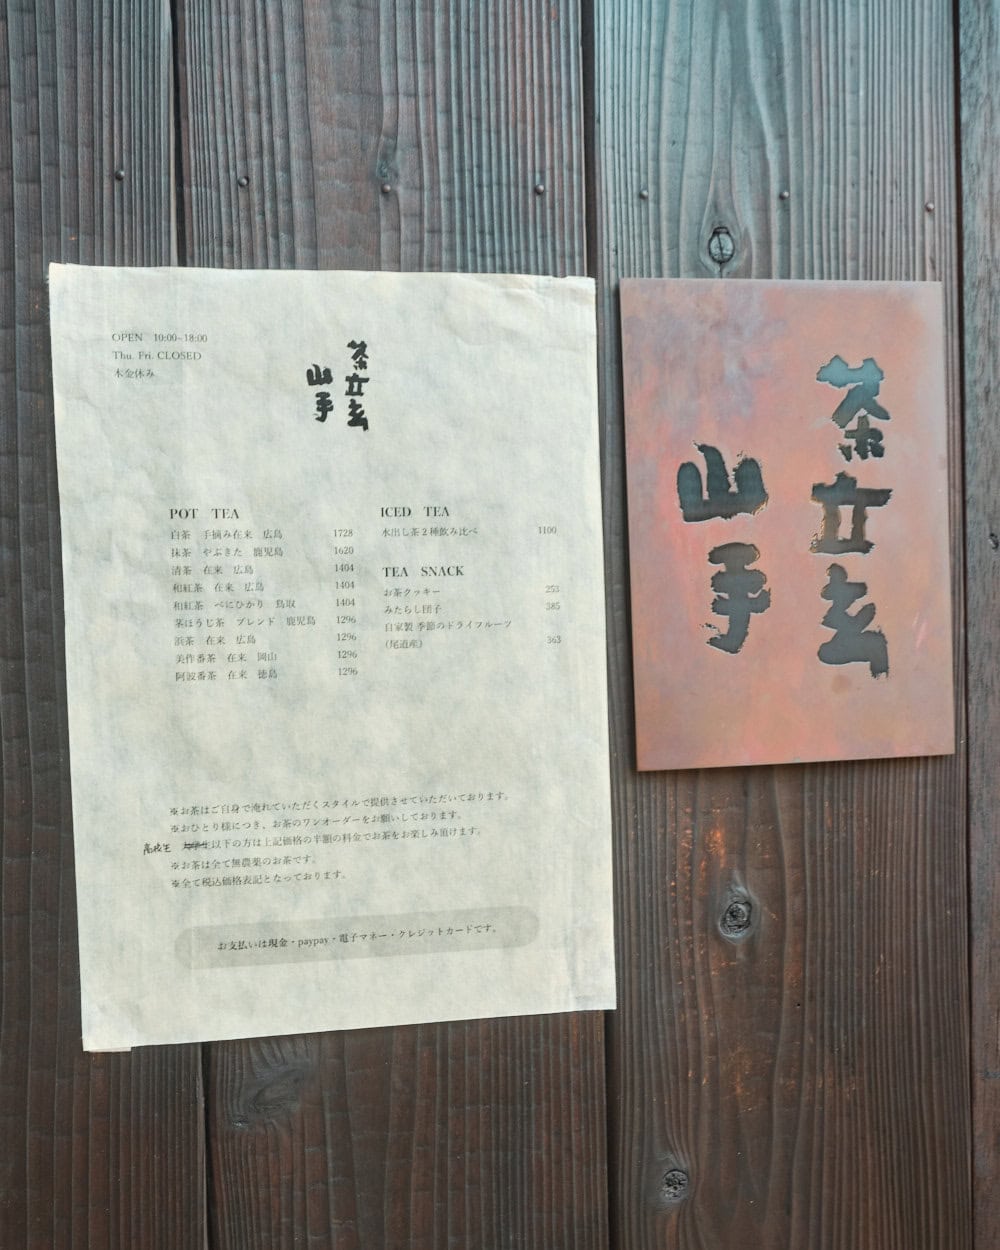 OPEN 10:00~18:00
Thu. Fri. CLOSED
木金休み
茶立玄
山手
POT TEA
白茶 手摘み在来 広島 1728
抹茶 やぶきた 鹿児島 1620
清茶 在来 広島 1404
和紅茶 在来 広島 1404
和紅茶 べにひかり 鳥取 1404
茎ほうじ茶 ブレンド 鹿児島 1296
浜茶 在来 広島 1296
美作番茶 在来 岡山 1296
阿波番茶 在来 徳島 1296
ICED TEA
水出し茶2種飲み比べ 1100
TEA SNACK
お茶クッキー 253
みたらし団子 385
自家製 季節のドライフルーツ
(尾道産) 363
※お茶はご自身で淹れていただくスタイルで提供させていただいております。
※おひとり様につき、お茶のワンオーダーをお願いしております。
高校生 以下の方は上記価格の半額の料金でお茶をお楽しみ頂けます。
※お茶は全て無農薬のお茶です。
※全て税込価格表記となっております。
お支払いは現金・paypay・電子マネー・クレジットカードです。
茶立玄
山手